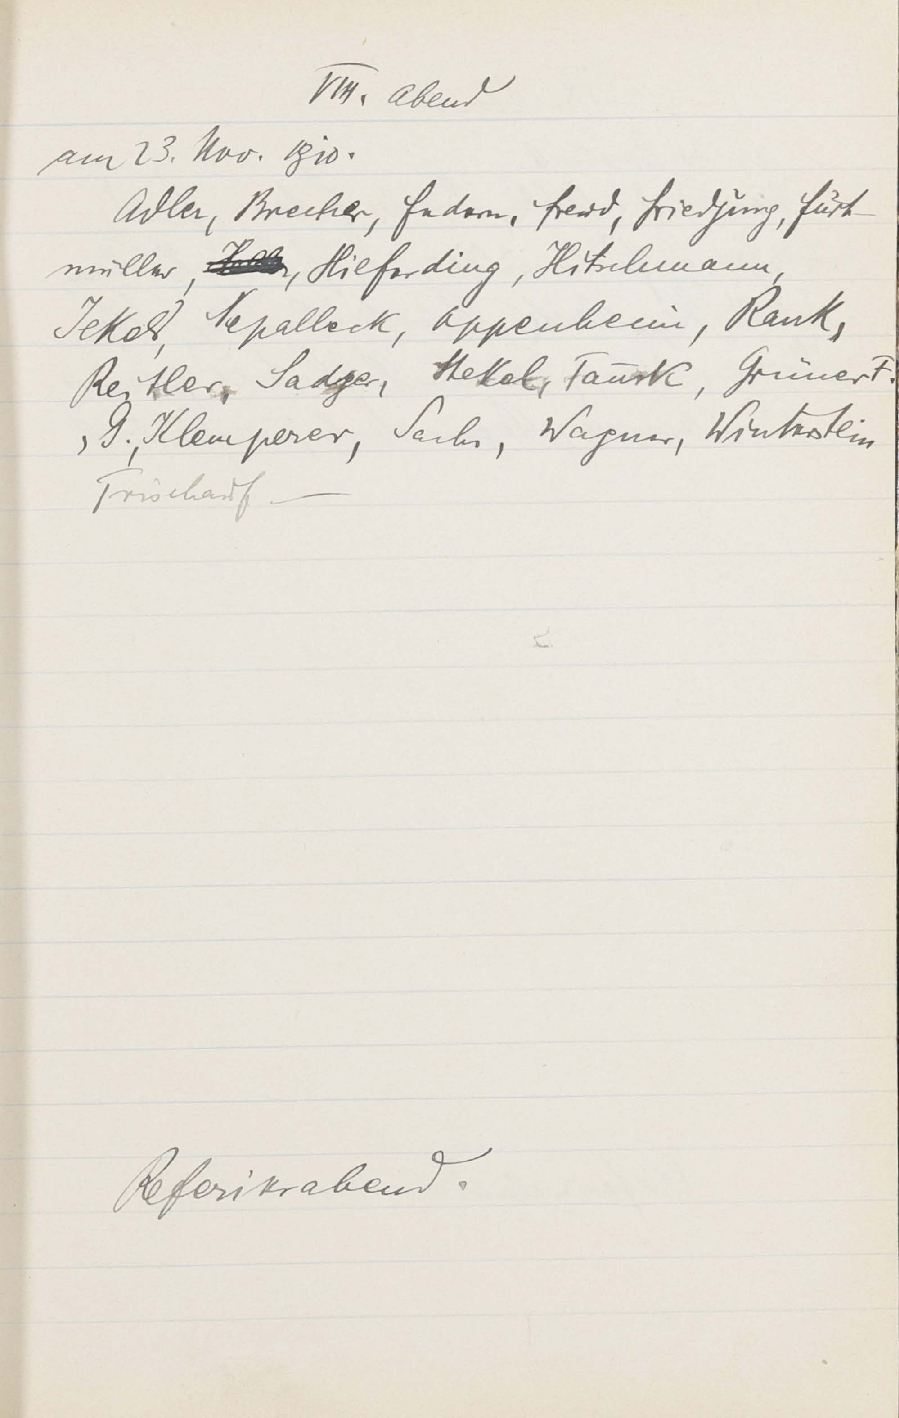 VIII. Abend
am 23. Nov. 1910.
Adler, Brecher, Federn, Freud, Friedjung, Furt-
müller, Hilferding, Hitschmann,
Jekels, Nepalleck, Oppenheim, Rank,
Reitler, Sadger, Stekel, Tausk, Grüner F.
, G., Klemperer, Sachs, Wagner, Winterstein
Frischauf —
Referierabend.